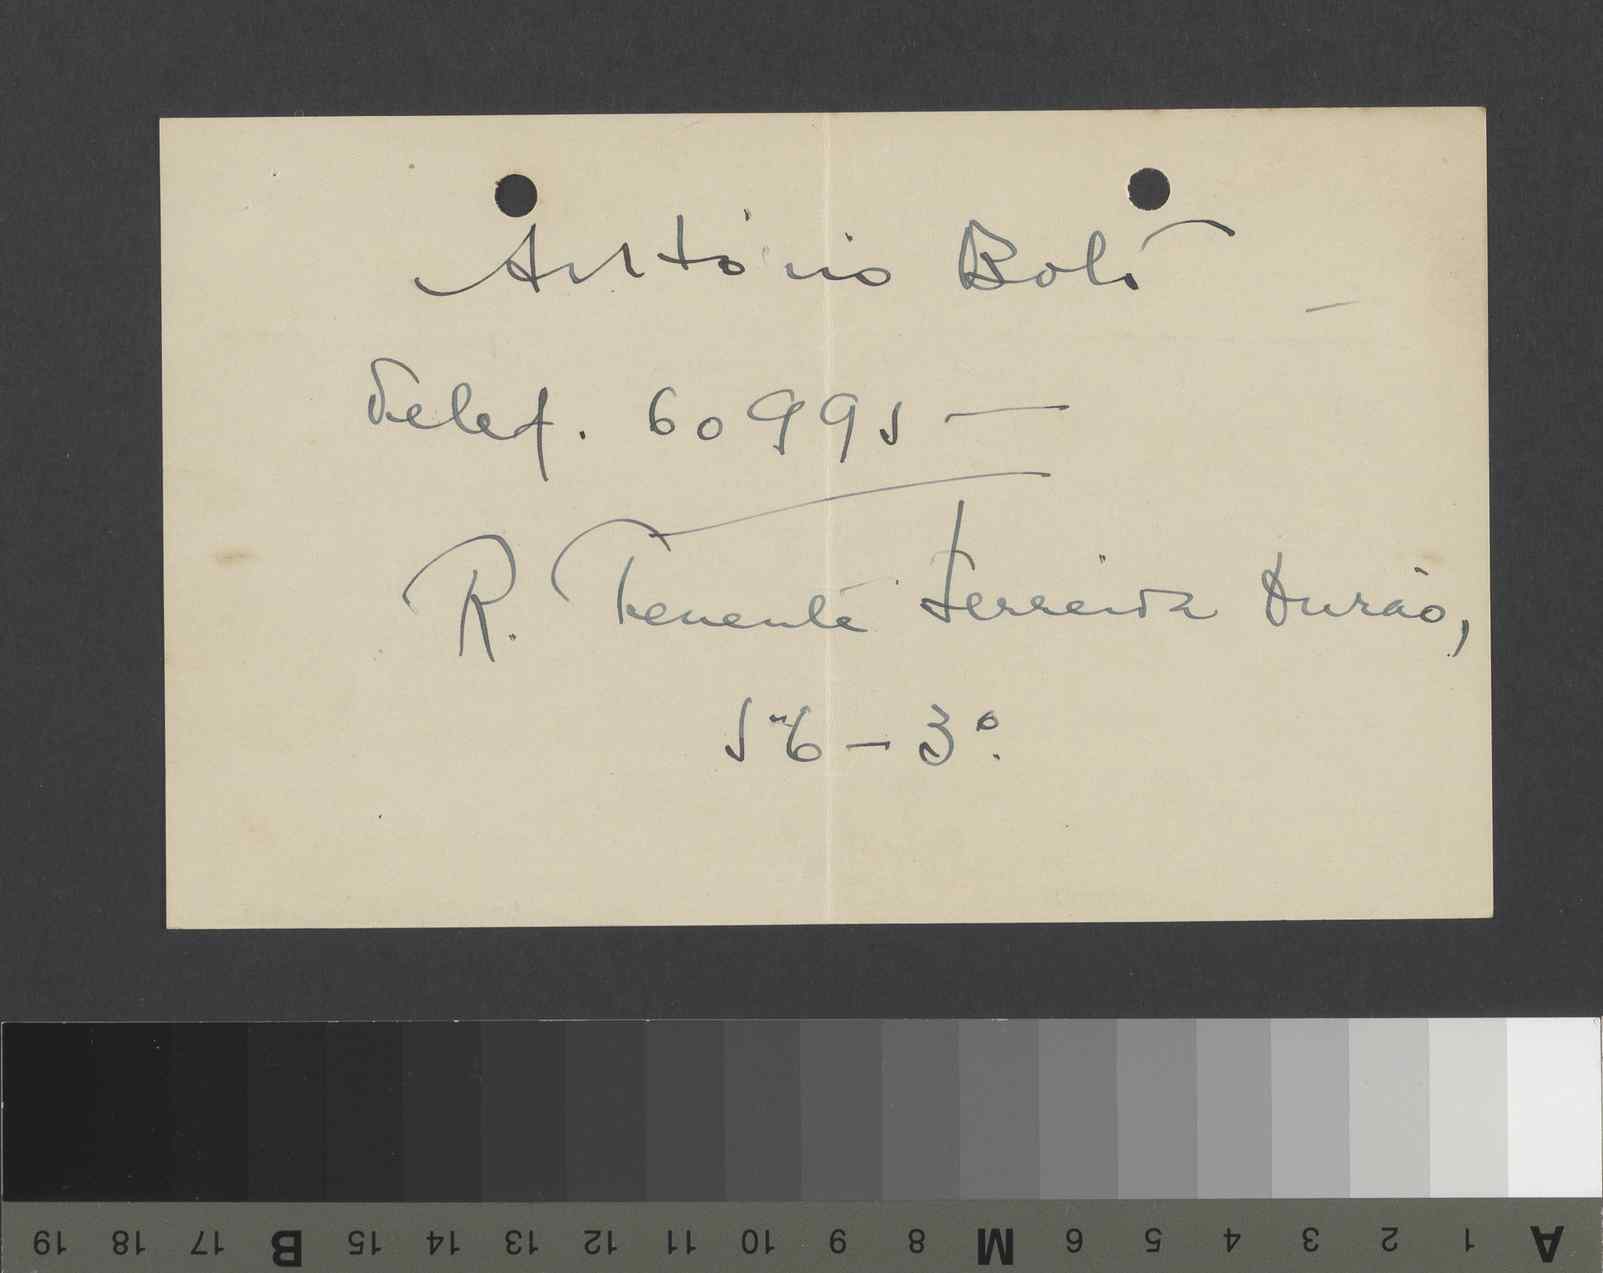 António Botto
Telef. 60995 —
R. Tenente Ferreira Durão,
56 – 3º.
19 18 17 B 15 14 13 12 11 10 9 8 M 6 5 4 3 2 1 A